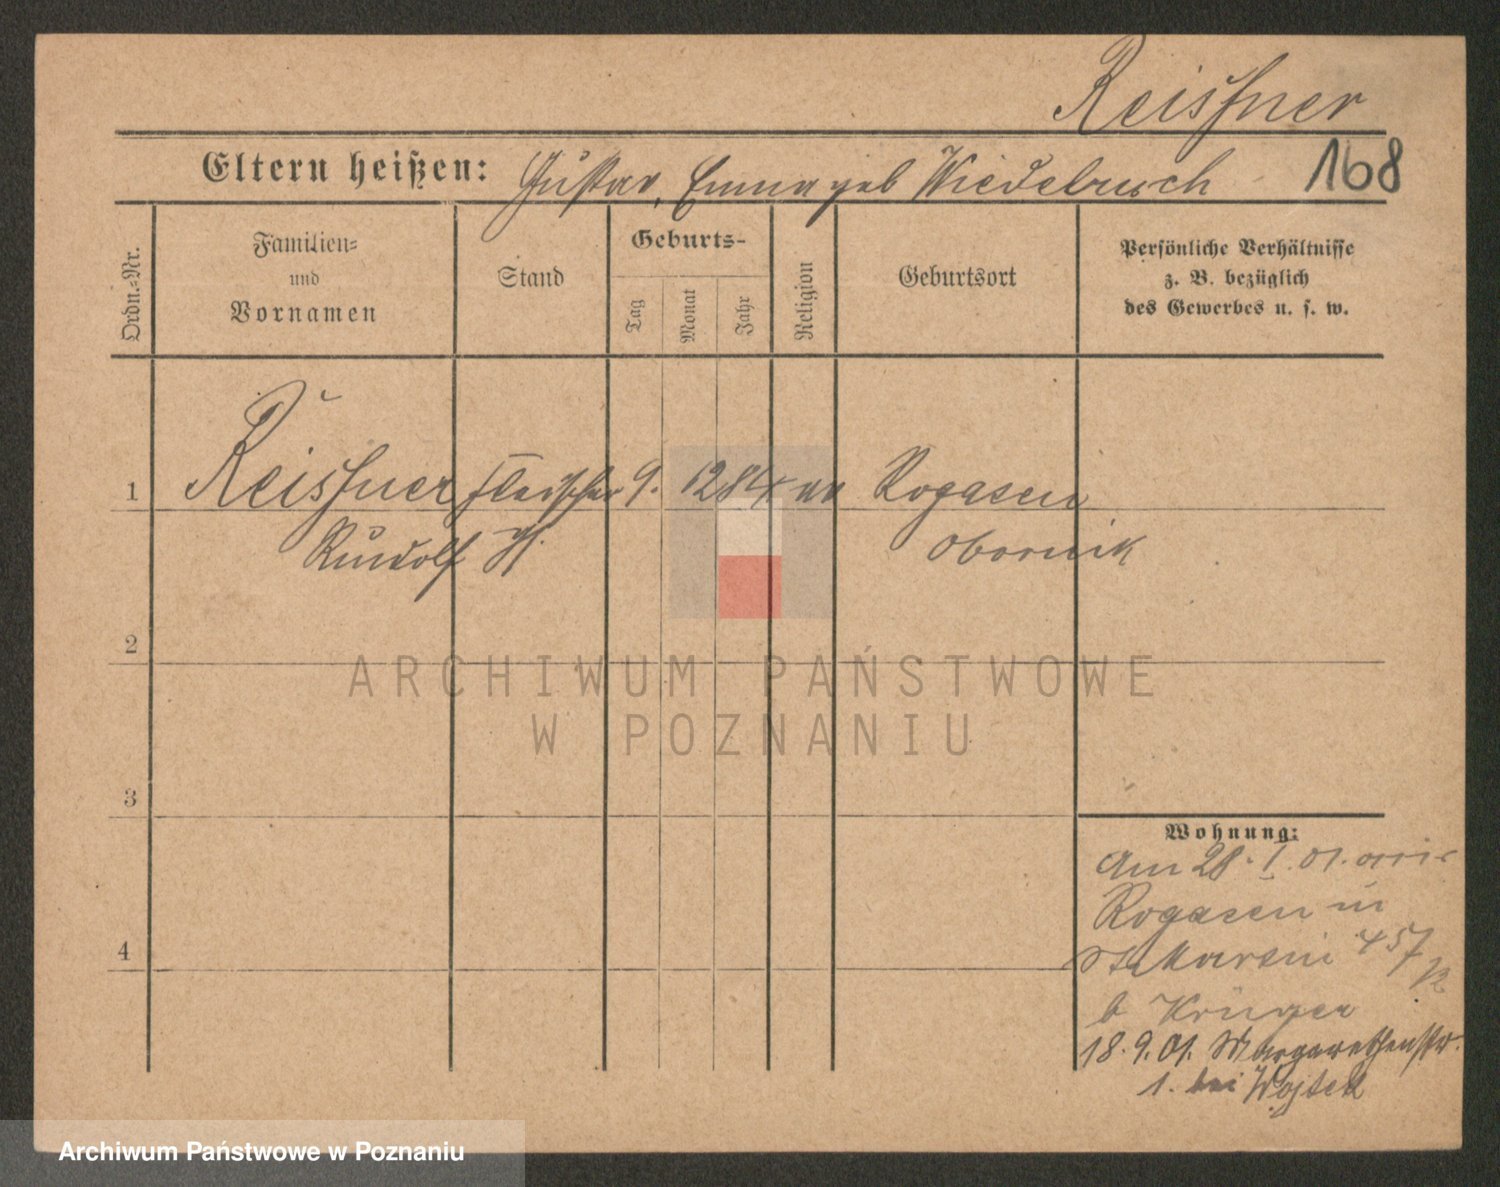 Reissner
Eltern heißen: Gustav, Emma geb Wiedebusch
168
Ordn.-Nr.
Familien-
und
Vornamen
Stand
Geburts-
Tag
Monat
Jahr
Religion
Geburtsort
Persönliche Verhältnisse
z. B. bezüglich
des Gewerbes u. s. w.
1 Reissner Fleischer 9. 12 84 Rogasen
Rudolf Obornik
2
3
4
Wohnung:
Am 28. 1. 01. aus
Rogasen in
St. Martin 57
b Krüger
18. 9. 01. Margarethenstr.
1. bei Wojtek
ARCHIWUM PAŃSTWOWE
W POZNANIU
Archiwum Państwowe w Poznaniu